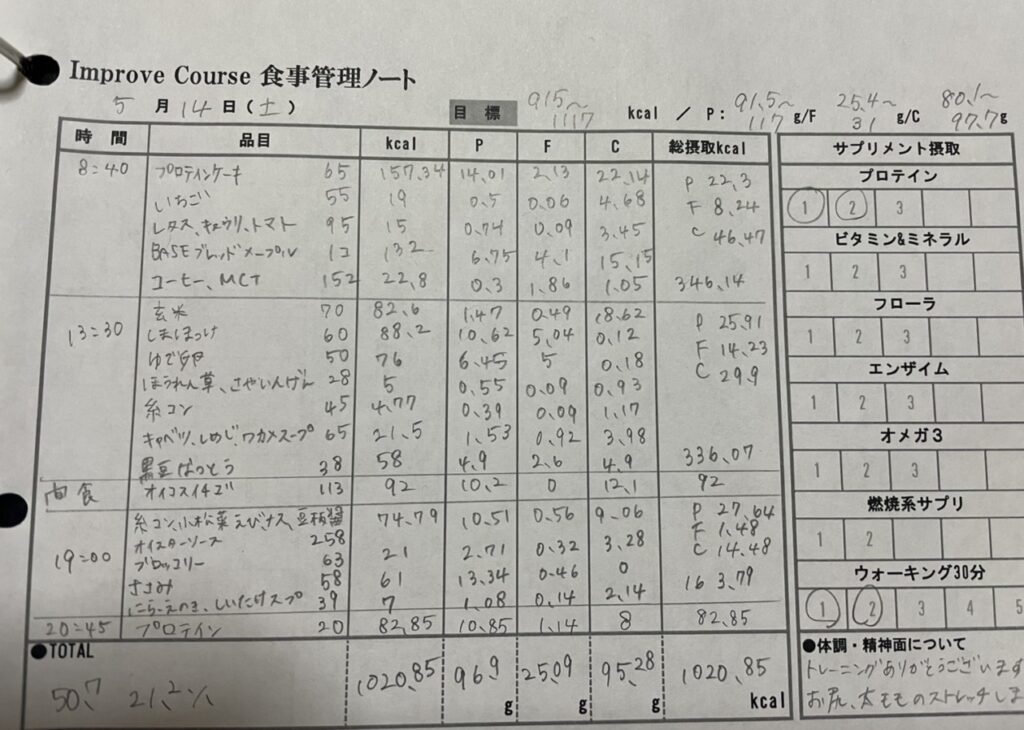 Improve Course 食事管理ノート
5 月 14 日 (土) 目標 915〜1117 kcal / P: 91.5〜117 g/F 25.4〜31 g/C 80.1〜97.7g
時間 品目 kcal P F C 総摂取kcal
8:40 プロテインケーキ 65 157.34 14.01 2.13 22.14 P 22.3
いちご 55 19 0.5 0.06 4.68 F 8.24
レタス、キュウリ、トマト 95 15 0.74 0.09 3.45 C 46.47
BASEブレッドメープル 1コ 132 6.75 4.1 15.15
コーヒー、MCT 152 22.8 0.3 1.86 1.05 346.14
13:30 玄米 70 82.6 1.47 0.49 18.62 P 25.91
しまほっけ 60 88.2 10.62 5.04 0.12 F 14.23
ゆで卵 50 76 6.45 5 0.18 C 29.9
ほうれん草、さやいんげん 28 5 0.55 0.09 0.93
糸コン 45 4.77 0.39 0.09 1.17
キャベツ、しめじ、ワカメスープ 65 21.5 1.53 0.92 3.98
黒豆なっとう 38 58 4.9 2.6 4.9 336.07
間食 オイコスイチゴ 113 92 10.2 0 12.1 92
19:00 糸コン、小松菜、えび、ナス、豆板醤 74.79 10.51 0.56 9.06 P 27.64
オイスターソース 258 F 1.48
ブロッコリー 63 21 2.71 0.32 3.28 C 14.48
ささみ 58 61 13.34 0.46 0 163.79
にら、えのき、しいたけスープ 39 7 1.08 0.14 2.14
20:45 プロテイン 20 82.85 10.85 1.14 8 82.85
●TOTAL
50.7 21.2% 1020.85 96.9 g 25.09 g 95.28 g 1020.85 kcal
サプリメント摂取
プロテイン
1 2 3
ビタミン&ミネラル
1 2 3
フローラ
1 2 3
エンザイム
1 2 3
オメガ3
1 2 3
燃焼系サプリ
1 2
ウォーキング30分
1 2 3 4 5
●体調・精神面について
トレーニングありがとうございます
お尻、太もものストレッチしま